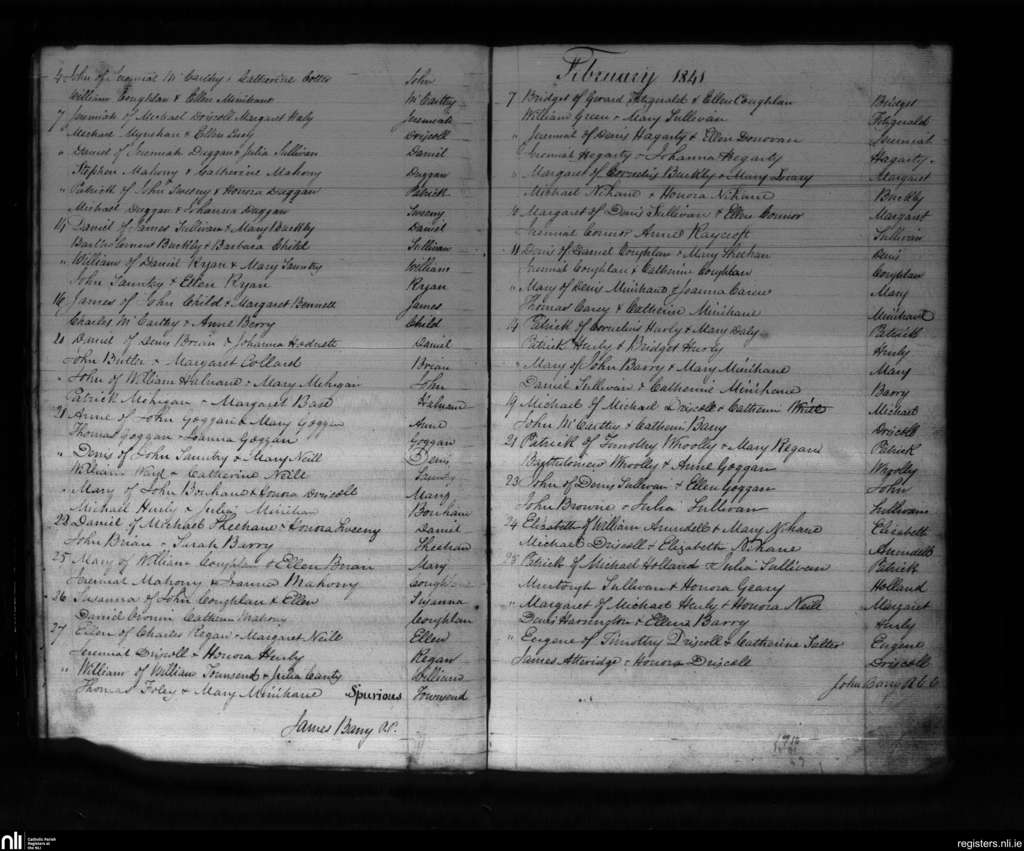 4 John of Jeremiah McCarthy & Catherine Cotter John
William Coughlan & Ellen Minihane McCarthy
7 Jeremiah of Michael Driscoll Margaret Haly Jeremiah
Michael Mynehan & Ellen Driscoll
" Daniel of Jeremiah Duggan & Julia Sullivan Daniel
Stephen Mahony & Catherine Mahony Duggan
" Patrick of John Sweeny & Honora Duggan Patrick
Michael Duggan & Johanna Duggan Sweeny
14 Daniel of James Sullivan & Mary Buckley Daniel
Bartholomew Buckley & Barbara Child Sullivan
" William of Daniel Ryan & Mary Sauntry William
John Sauntry & Ellen Ryan Ryan
16 James of John Child & Margaret Bennett James
Charles McCarthy & Anne Berry Child
20 Daniel of Denis Brian & Johanna Hodnett Daniel
John Butler & Margaret Collard Brian
" John of William Halnane & Mary Mehigan John
Patrick Mehigan & Margaret Base Halnane
21 Anne of John Goggan & Mary Goggan Anne
Thomas Goggan & Joanna Goggan Goggan
" Denis of John Sauntry & Mary Neill Denis
William & Catherine Neill Sauntry
" Mary of John Bouhane & Honora Driscoll Mary
Michael Hurly & Julia Minihan Bouhane
22 Daniel of Michael Sheehane & Honora Sweeny Daniel
John Brian & Sarah Barry Sheehan
25 Mary of William Coughlan & Ellen Brian Mary
Jeremiah Mahony & Joanna Mahony Coughlane
26 Susanna of John Coughlan & Ellen Susanna
Daniel Cronin Catherine Mahony Coughlan
27 Ellen of Charles Regan & Margaret Neill Ellen
Jeremiah Driscoll & Honora Hurly Regan
" William of William Townsend & Julia Canty William
Thomas Foley & Mary Minihane Spurious Townsend
James Barry P.P.
February 1841
7 Bridget of Gerard Fitzgerald & Ellen Coughlan Bridget
William Green & Mary Sullivan Fitzgerald
" Jeremiah of Denis Hagarty & Ellen Donovan Jeremiah
Jeremiah Hegarty & Johanna Hegarty Hagarty
" Margaret of Cornelius Buckley & Mary Margaret
Michael Nihane & Honora Nihane Buckly
Margaret of Denis Sullivan & Ellen Connor Margaret
Jeremiah Connor Anne Raycroft Sullivan
11 Denis of Daniel Coughlan & Mary Sheehan Denis
Jeremiah Coughlan & Catherine Coughlan Coughlan
" Mary of Denis Minihane & Joanna Carew Mary
Thomas Carey & Catherine Minihane Minihane
14 Patrick of Cornelius Hurly & Mary Daly Patrick
Patrick Hurly & Bridget Hurly Hurly
" Mary of John Barry & Mary Minihane Mary
Daniel Sullivan & Catherine Minihane Barry
19 Michael of Michael Driscoll & Catherine White Michael
John McCarthy & Catherine Barry Driscoll
21 Patrick of Timothy Whoolly & Mary Regan Patrick
Bartholomew Whoolly & Anne Goggan Whoolley
23 John of Denis Sullivan & Ellen Goggan John
John Browne & Julia Sullivan Sullivan
24 Elizabeth of William Arundell & Mary Nihane Elizabeth
Michael Driscoll & Elizabeth Nihane Arundell
25 Patrick of Michael Holland & Julia Sullivan Patrick
Murtough Sullivan & Honora Geary Holland
" Margaret of Michael Hurly & Honora Neill Margaret
Denis Harrington & Ellena Barry Hurly
" Eugene of Timothy Driscoll & Catharine Salter Eugene
James Atteridge & Honora Driscoll Driscoll
nli Catholic Parish Registers at the NLI
registers.nli.ie